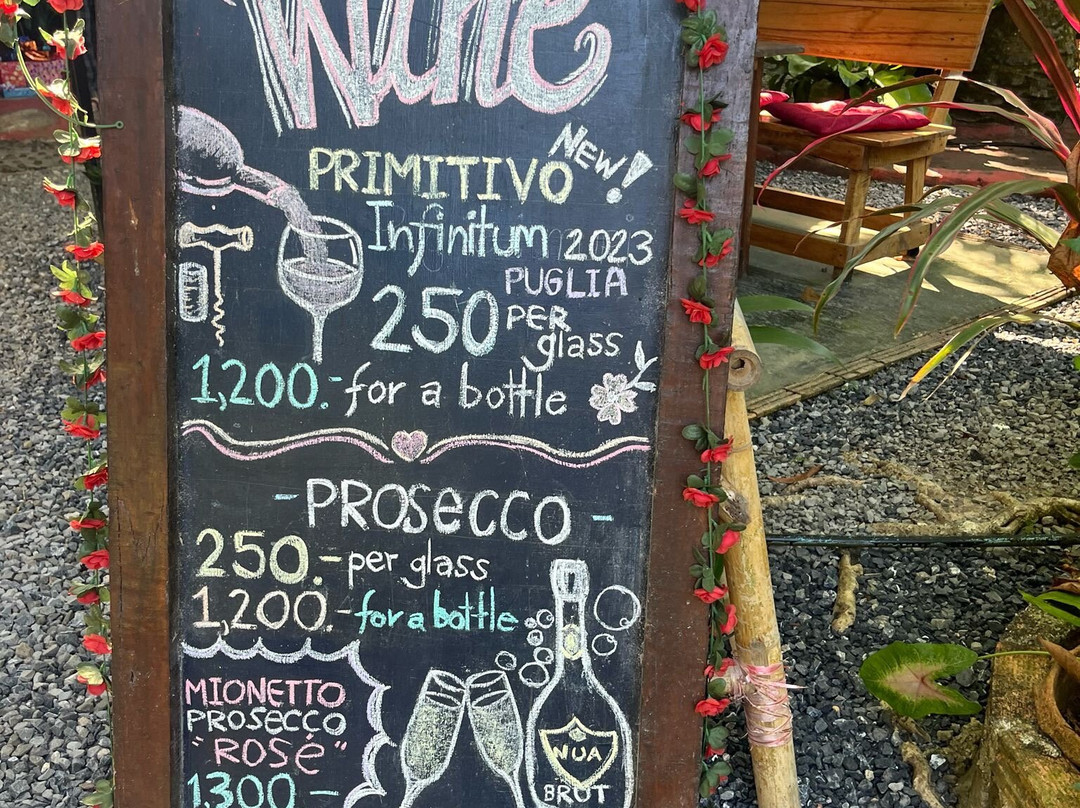 Wine
PRIMITIVO NEW!
Infinitum 2023
PUGLIA
250 PER
glass
1,200.- for a bottle
- PROSECCO -
250.- per glass
1,200.- for a bottle
MIONETTO
PROSECCO
"ROSÉ"
1300 -
NUA
BRUT